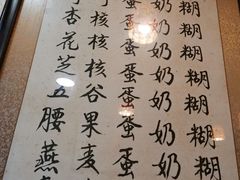 杏核蛋奶糊
花核蛋奶糊
芝核蛋奶糊
五谷蛋奶糊
腰果蛋奶糊
燕麦蛋奶糊